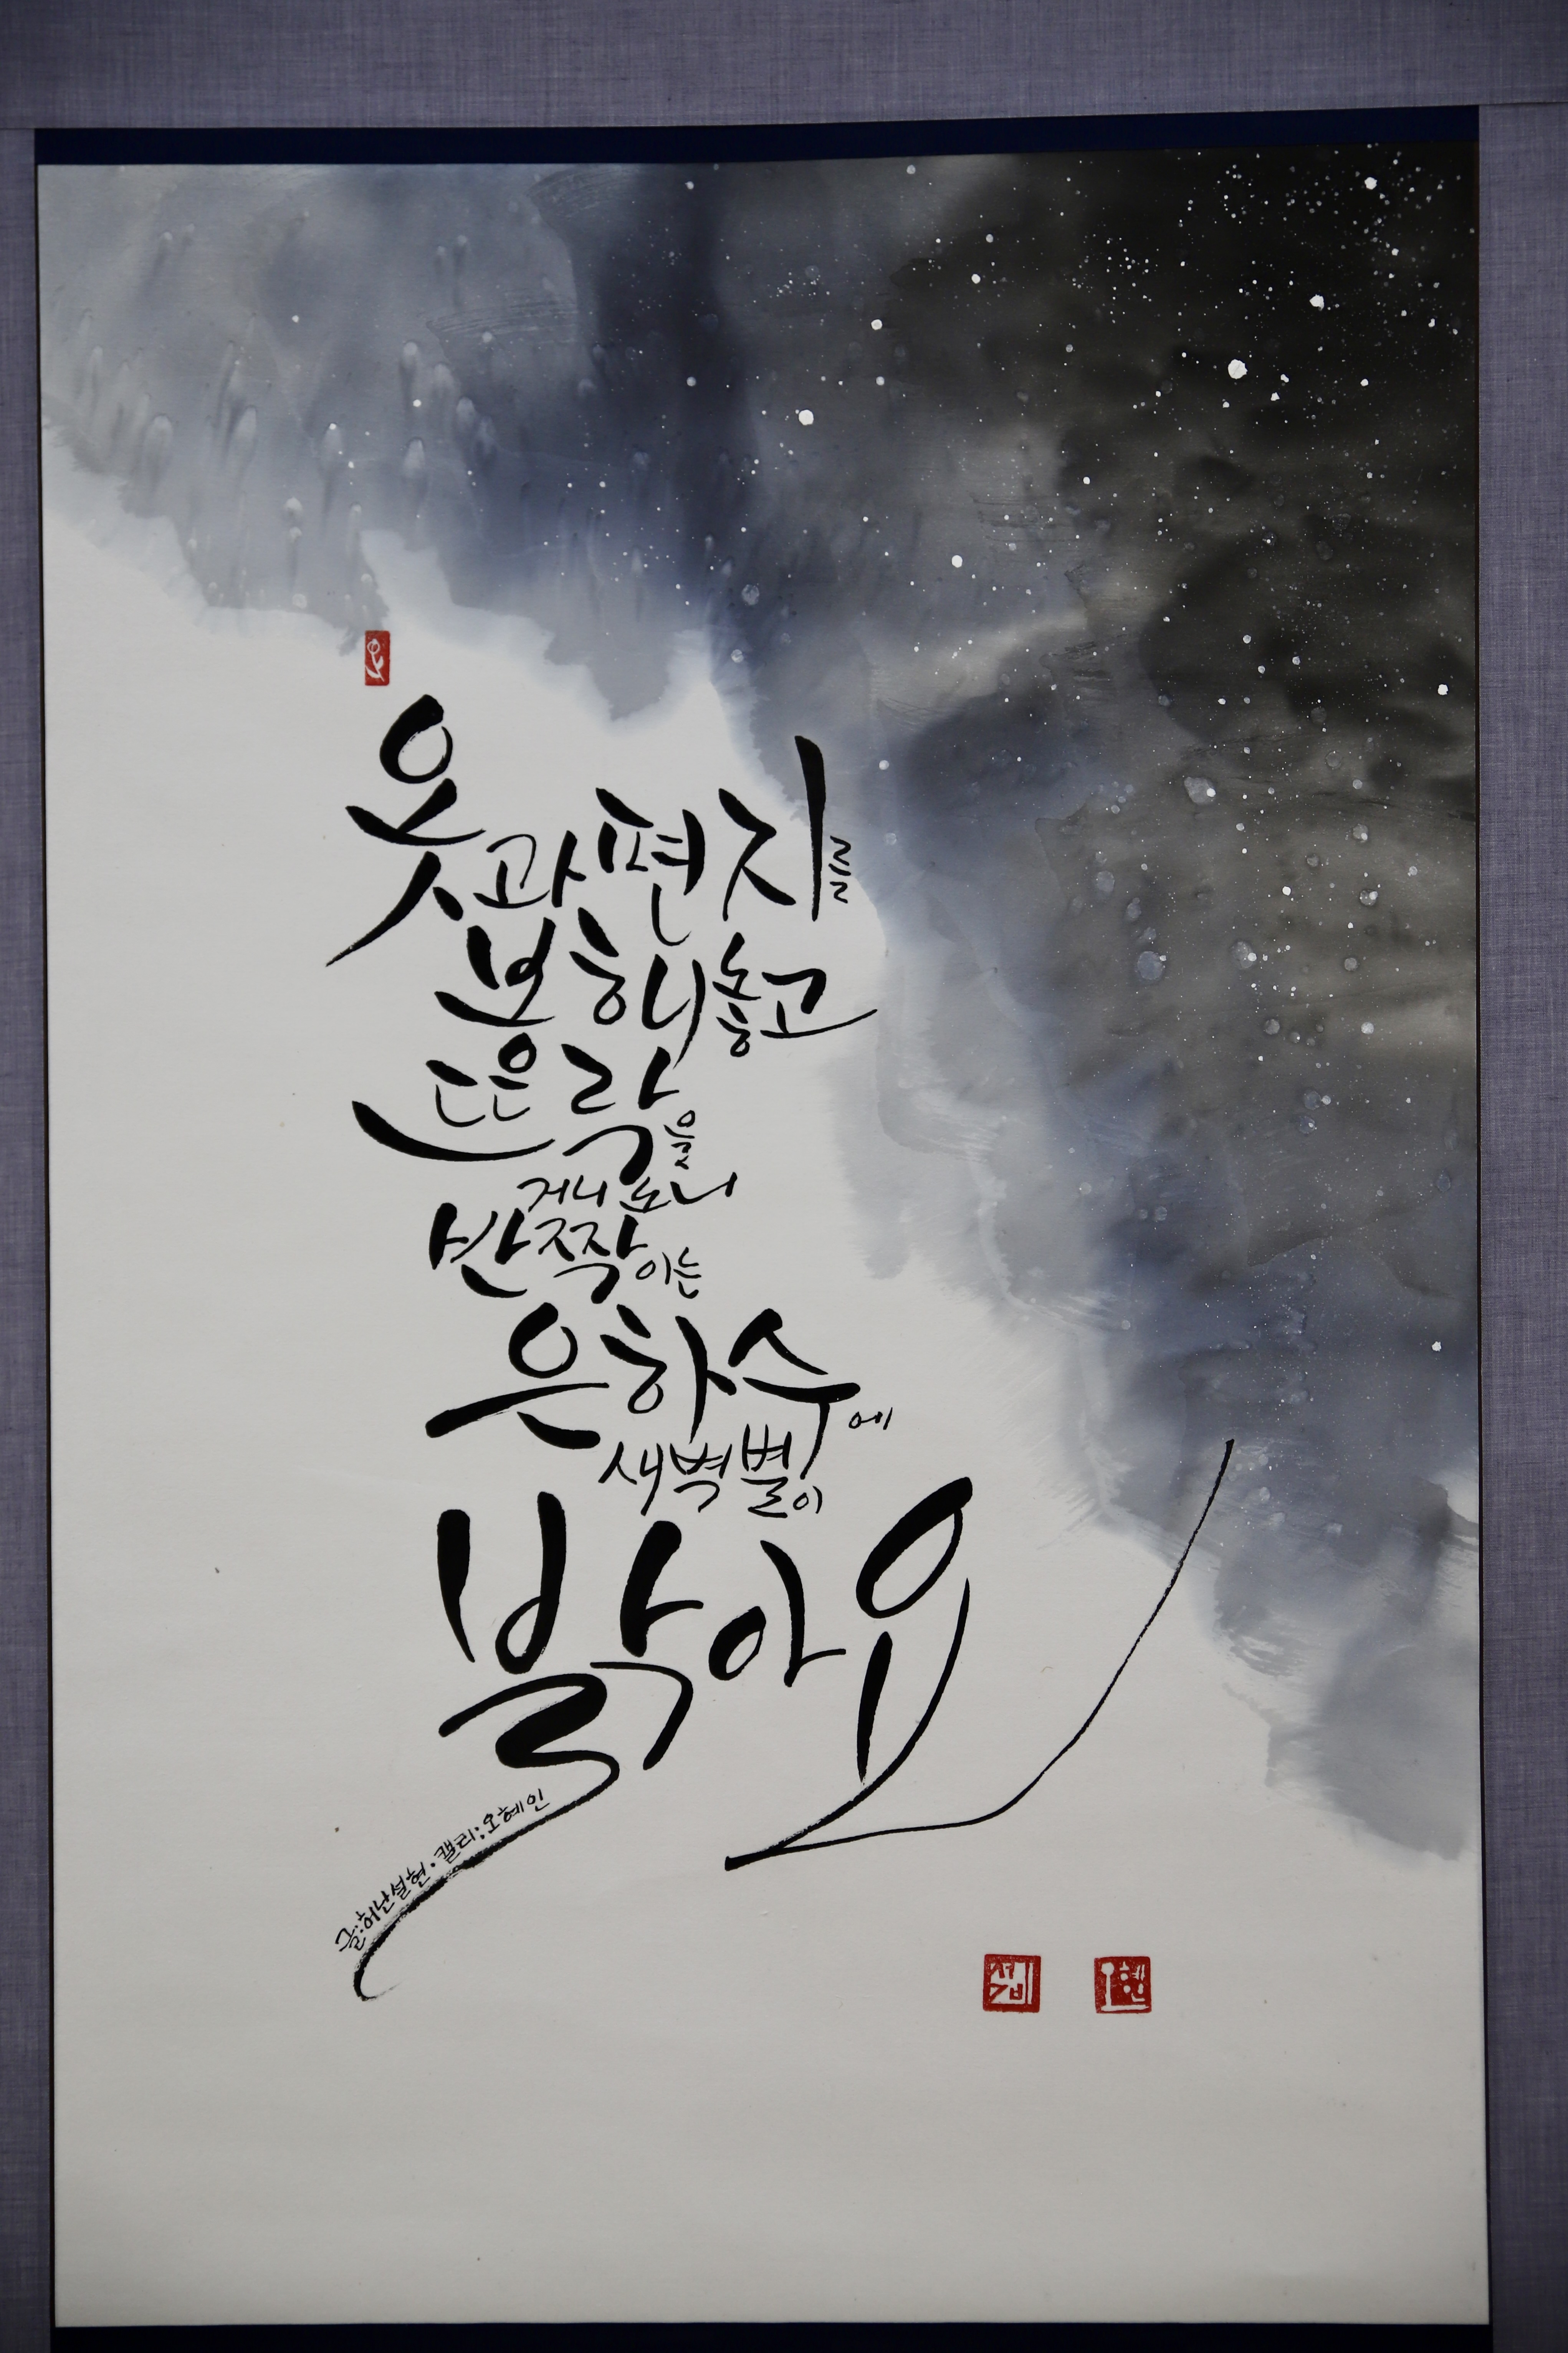 옷과 편지를
봉해놓고
뜨락을
거니노니
반짝이는
은하수에
새벽별이
밝아요
글:허난설헌·캘리:오혜인
오혜인